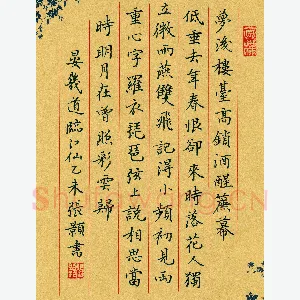 夢後樓臺高鎖酒醒簾幕
低垂去年春恨卻來時落花人獨
立微雨燕雙飛記得小蘋初見兩
重心字羅衣琵琶弦上說相思當
時明月在曾照彩雲歸
晏幾道臨江仙乙未張顥書